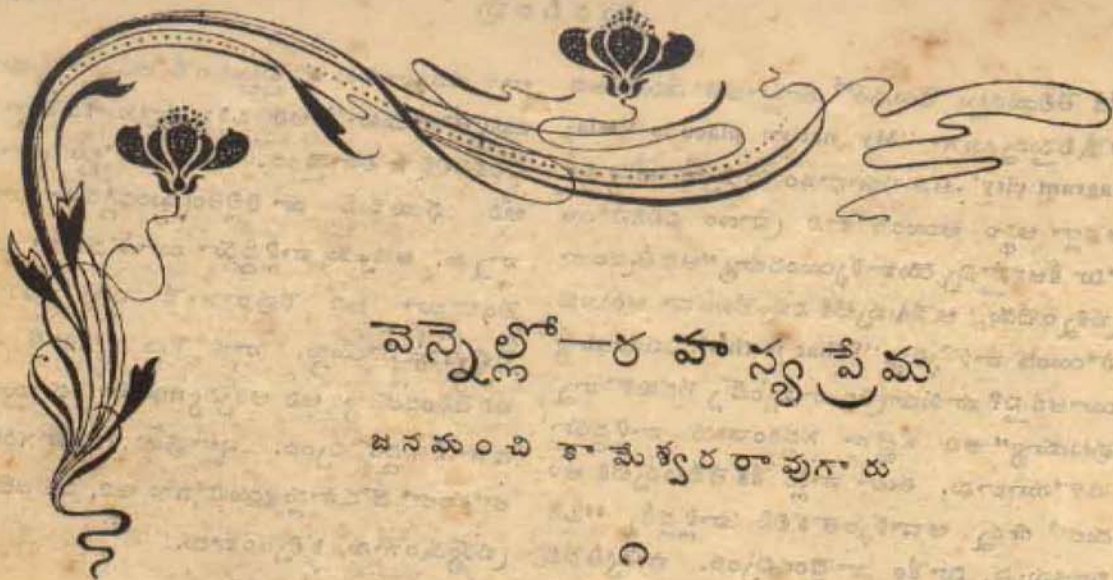 వెన్నెల్లో—రహస్యప్రేమ
జనమంచి కామేశ్వరరావుగారు
౧